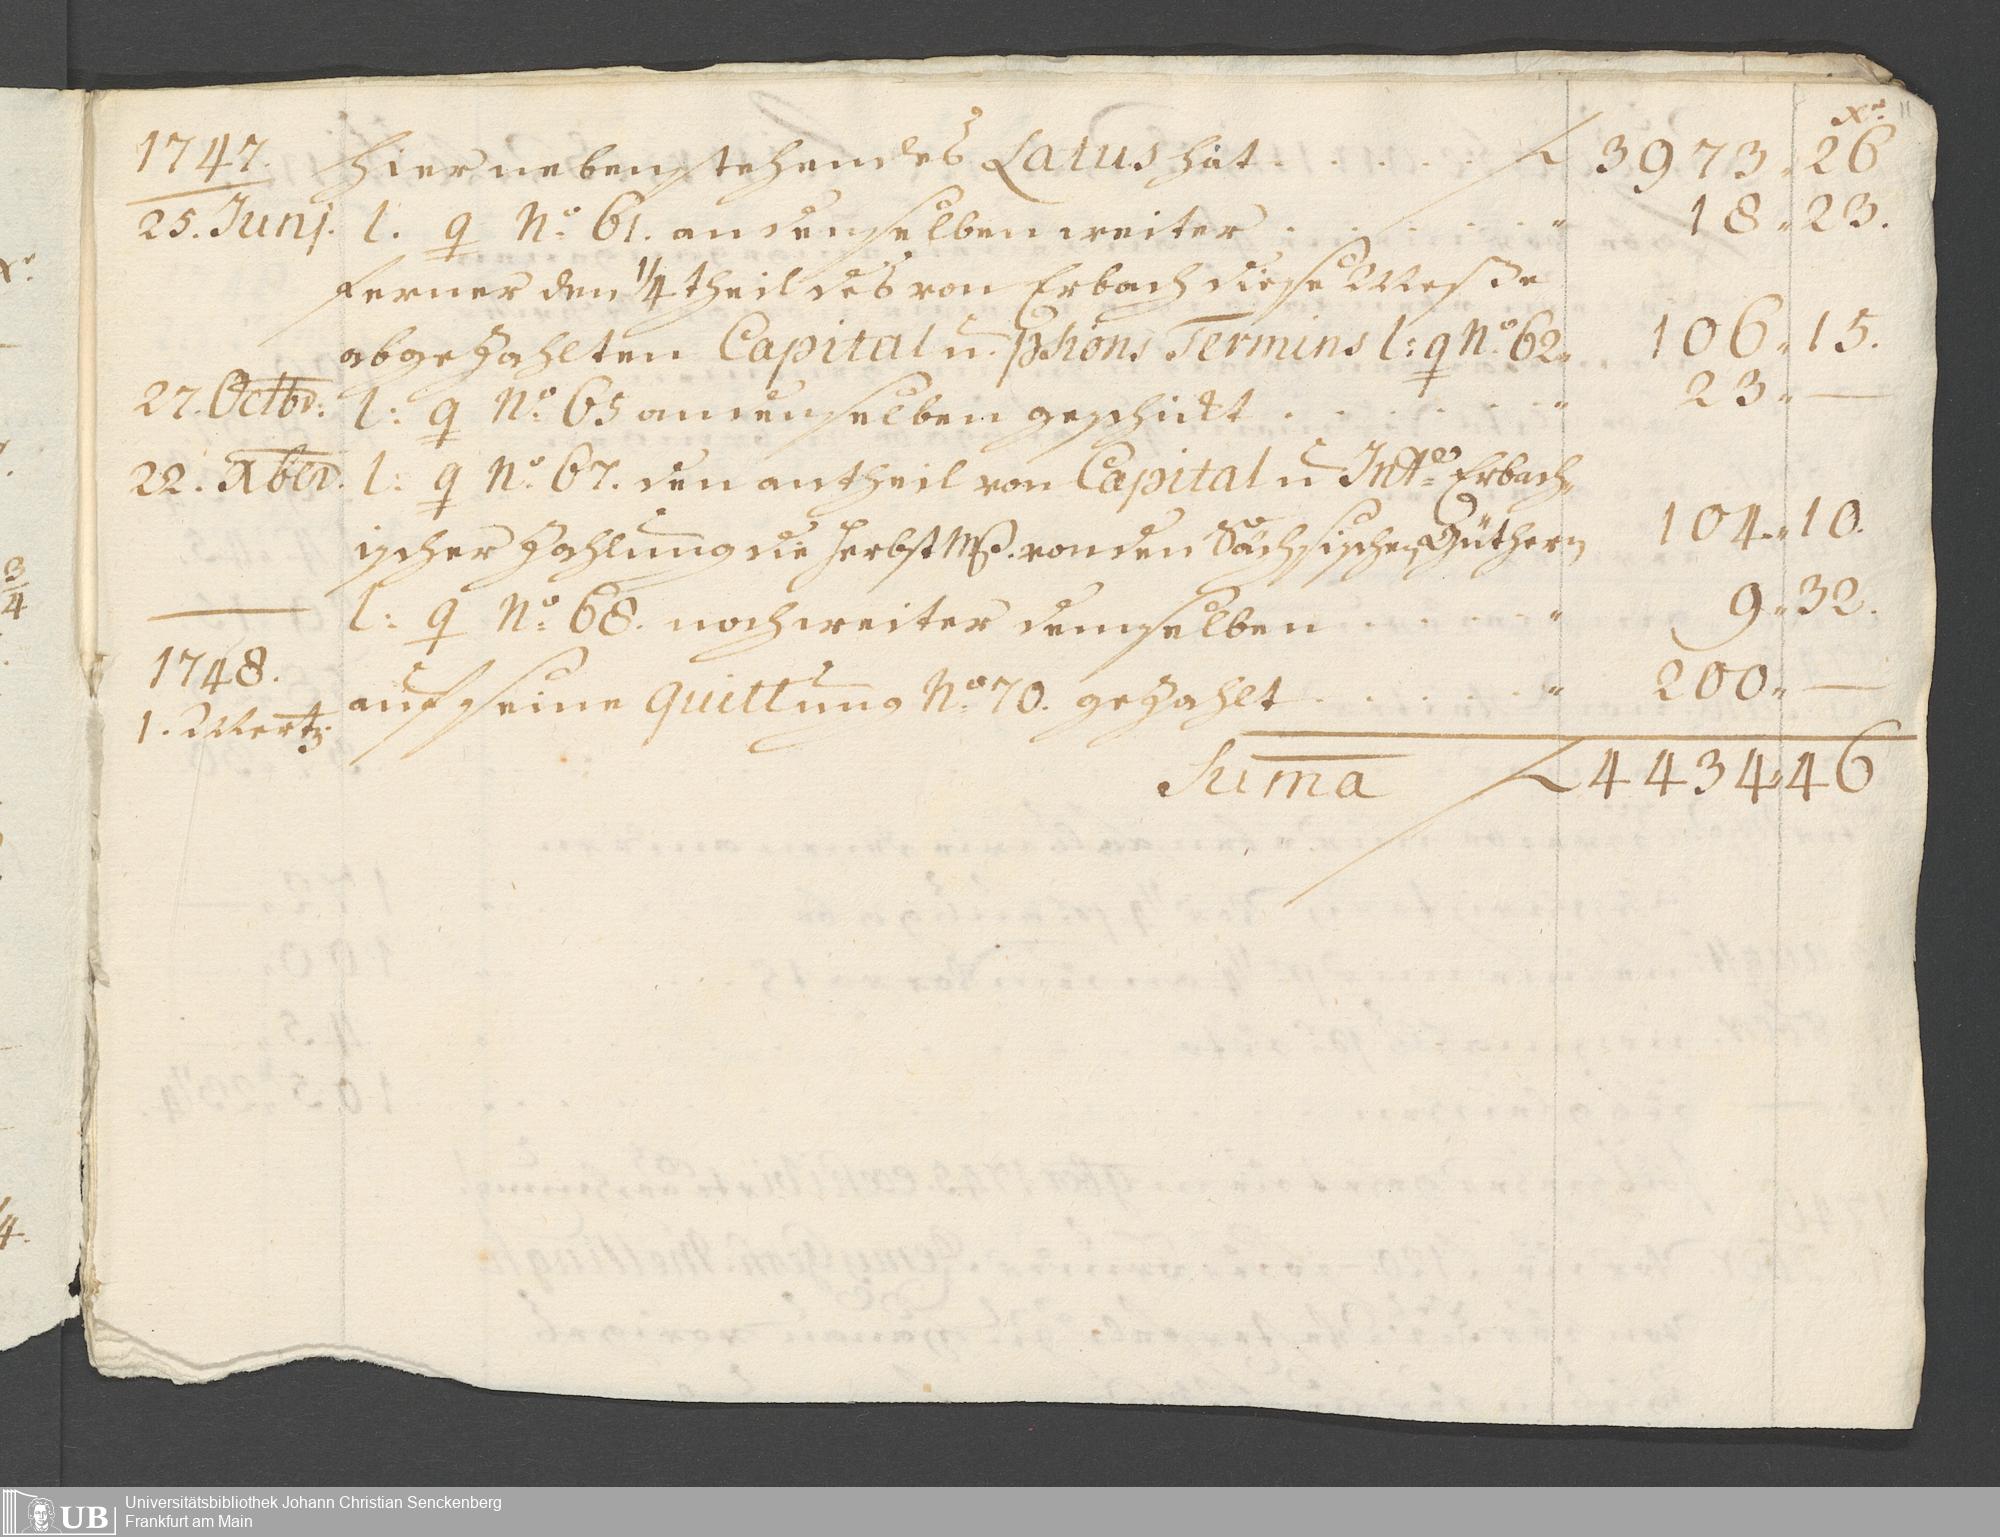 Xr. 11
1747. Hierneben stehendes Latus hat . . . . . f 3973 „ 26
25. Junj. l. q No. 61. an denselben weiter . . . . . . „ 18 „ 23.
ferner den 1/4 theil des von Erbach diese Messe
abgezahlten Capital u. pensions Termins l: q No. 62 „ 106 „ 15.
27. Octbr: l: q No. 65 an denselben geschickt . . . . . . „ 23 „ —
22. Xber. l: q No. 67. den antheil von Capital u Inte. Erbach„
ischer Zahlung die Herbst Mß. von den Sächsischen Güthern 104 „ 10.
l: q No. 68. noch weiter demselben . . . . „ 9 „ 32.
1748.
1. Mertz auf seine quittung No. 70. gezahlt . . . . . „ 200 „ —
Suma f 4434 „ 46
Xr.
3/4
/4.
UB
Universitätsbibliothek Johann Christian Senckenberg
Frankfurt am Main